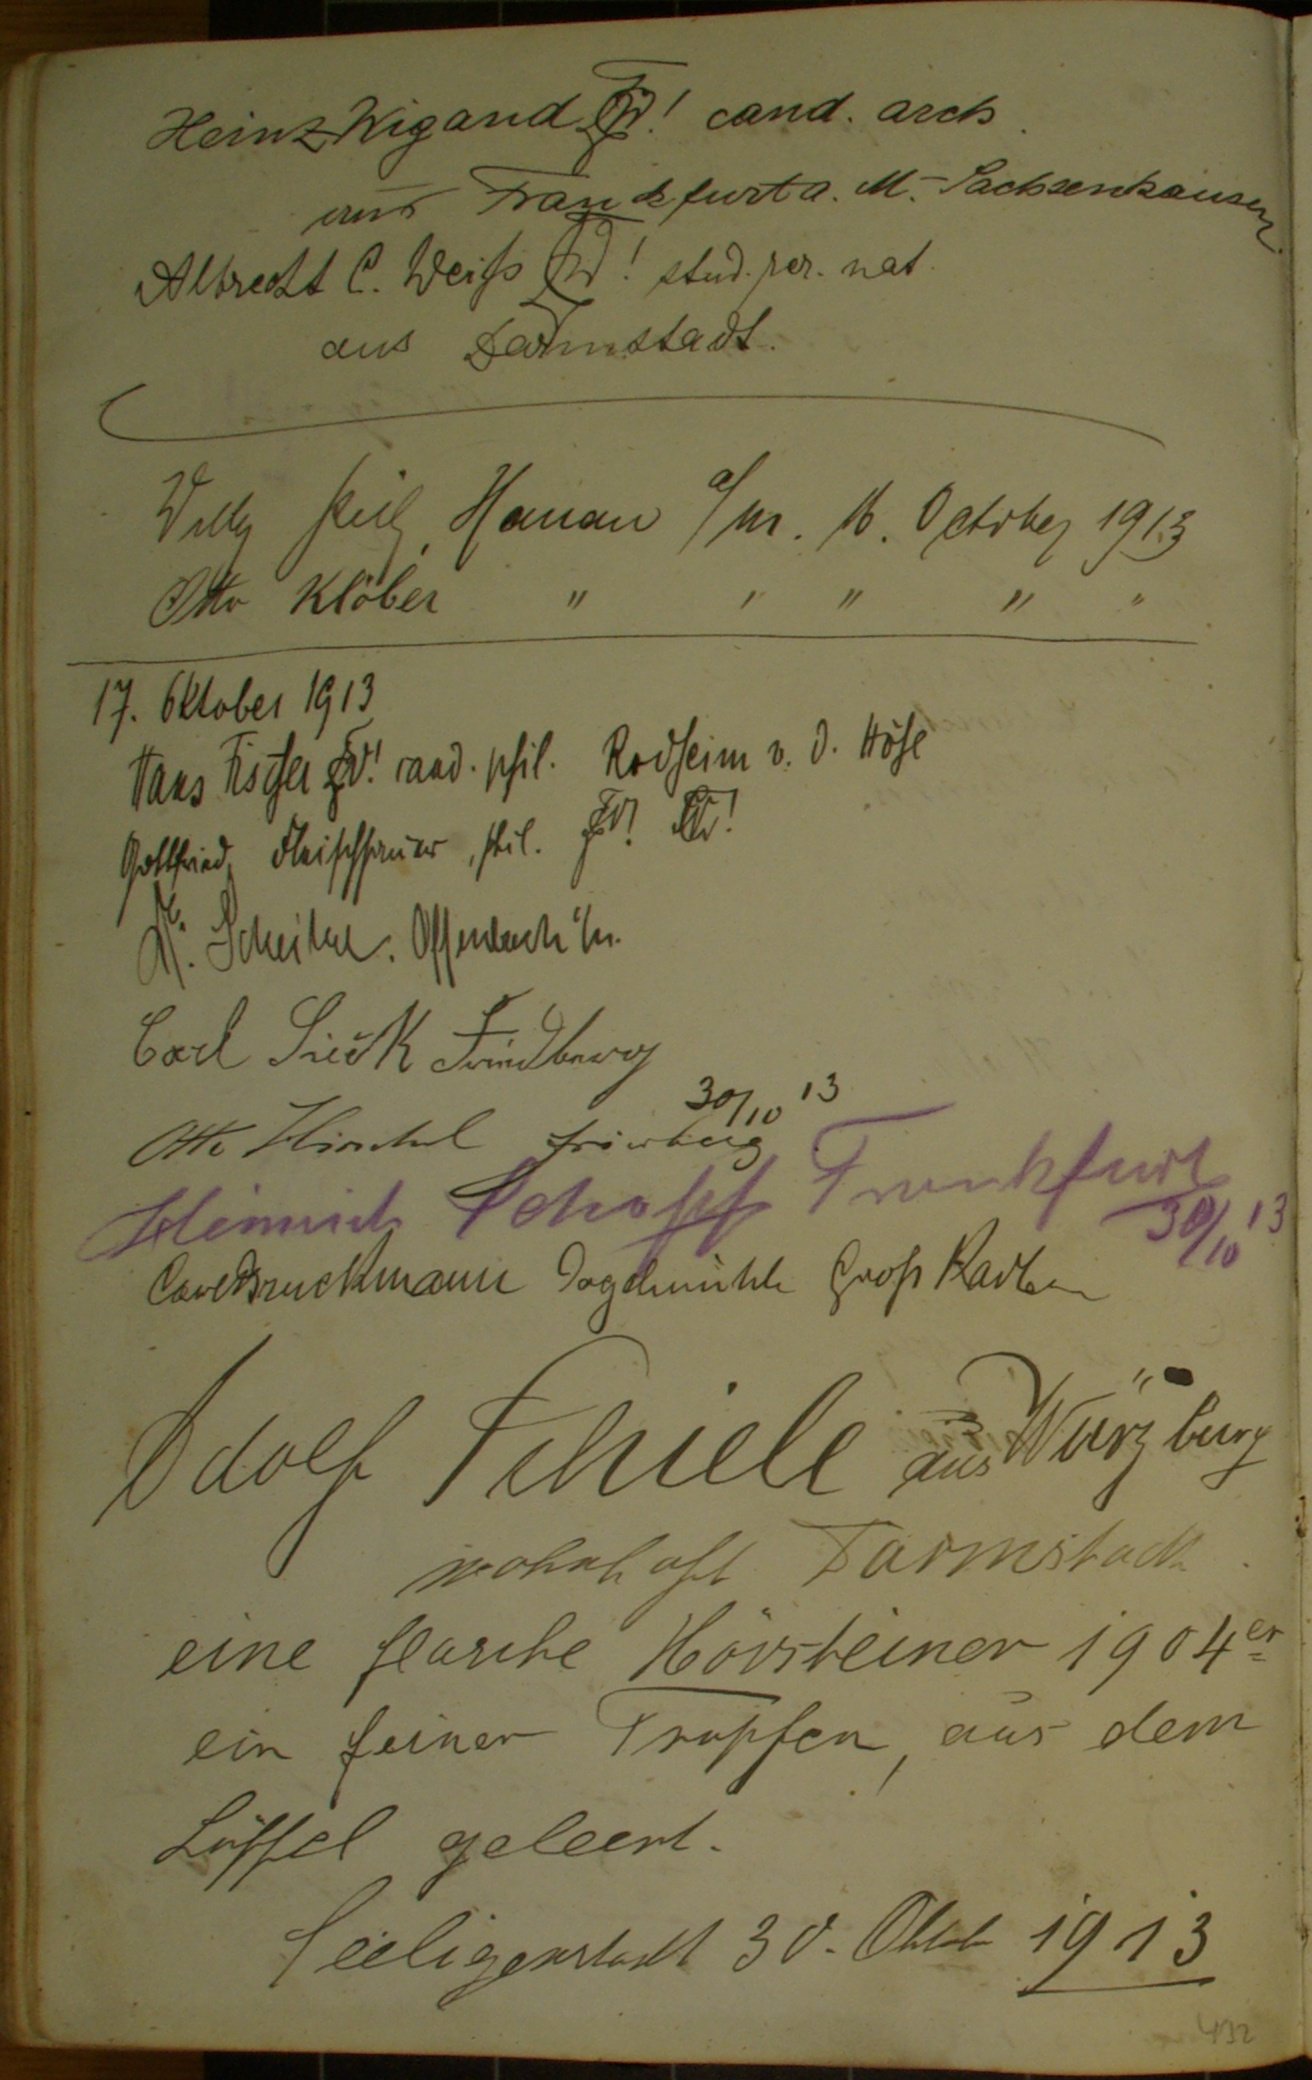 Heinz Wigand ! cand. arch.
aus Frankfurt a. M.-Sachsenhausen
Albrecht C. Weiß ! stud. rer. nat.
aus Darmstadt.
Willy Hanau a/m. 16. October 1913
Otto Klöber " " " " "
17. Oktober 1913
Hans Fischer ! cand. phil. Rodheim v. d. Höhe
Gottfried Fleischhauer, phil. ! !
Offenbach a/m.
Carl Sieck Friedberg
30/10 13
Otto Hirschel Friedberg
Heinrich Schopf Frankfurt
30/10 13
Carl Bruckmann Groß Karben
Adolf Schiele aus Würzburg
wohnhaft Darmstadt
eine flasche Hörsteiner 1904er
ein feiner Tropfen, aus dem
Löffel geleert.
Seeligenstadt 30. Oktob 1913
432